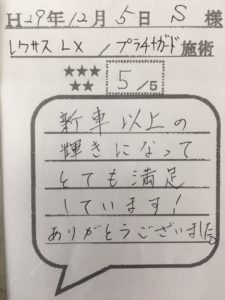 H29年12月5日 S 様
レクサスLX／プラチナガード施術
★★★
★★
5/5
新車以上の
輝きになって
とても満足
しています!
ありがとうございました